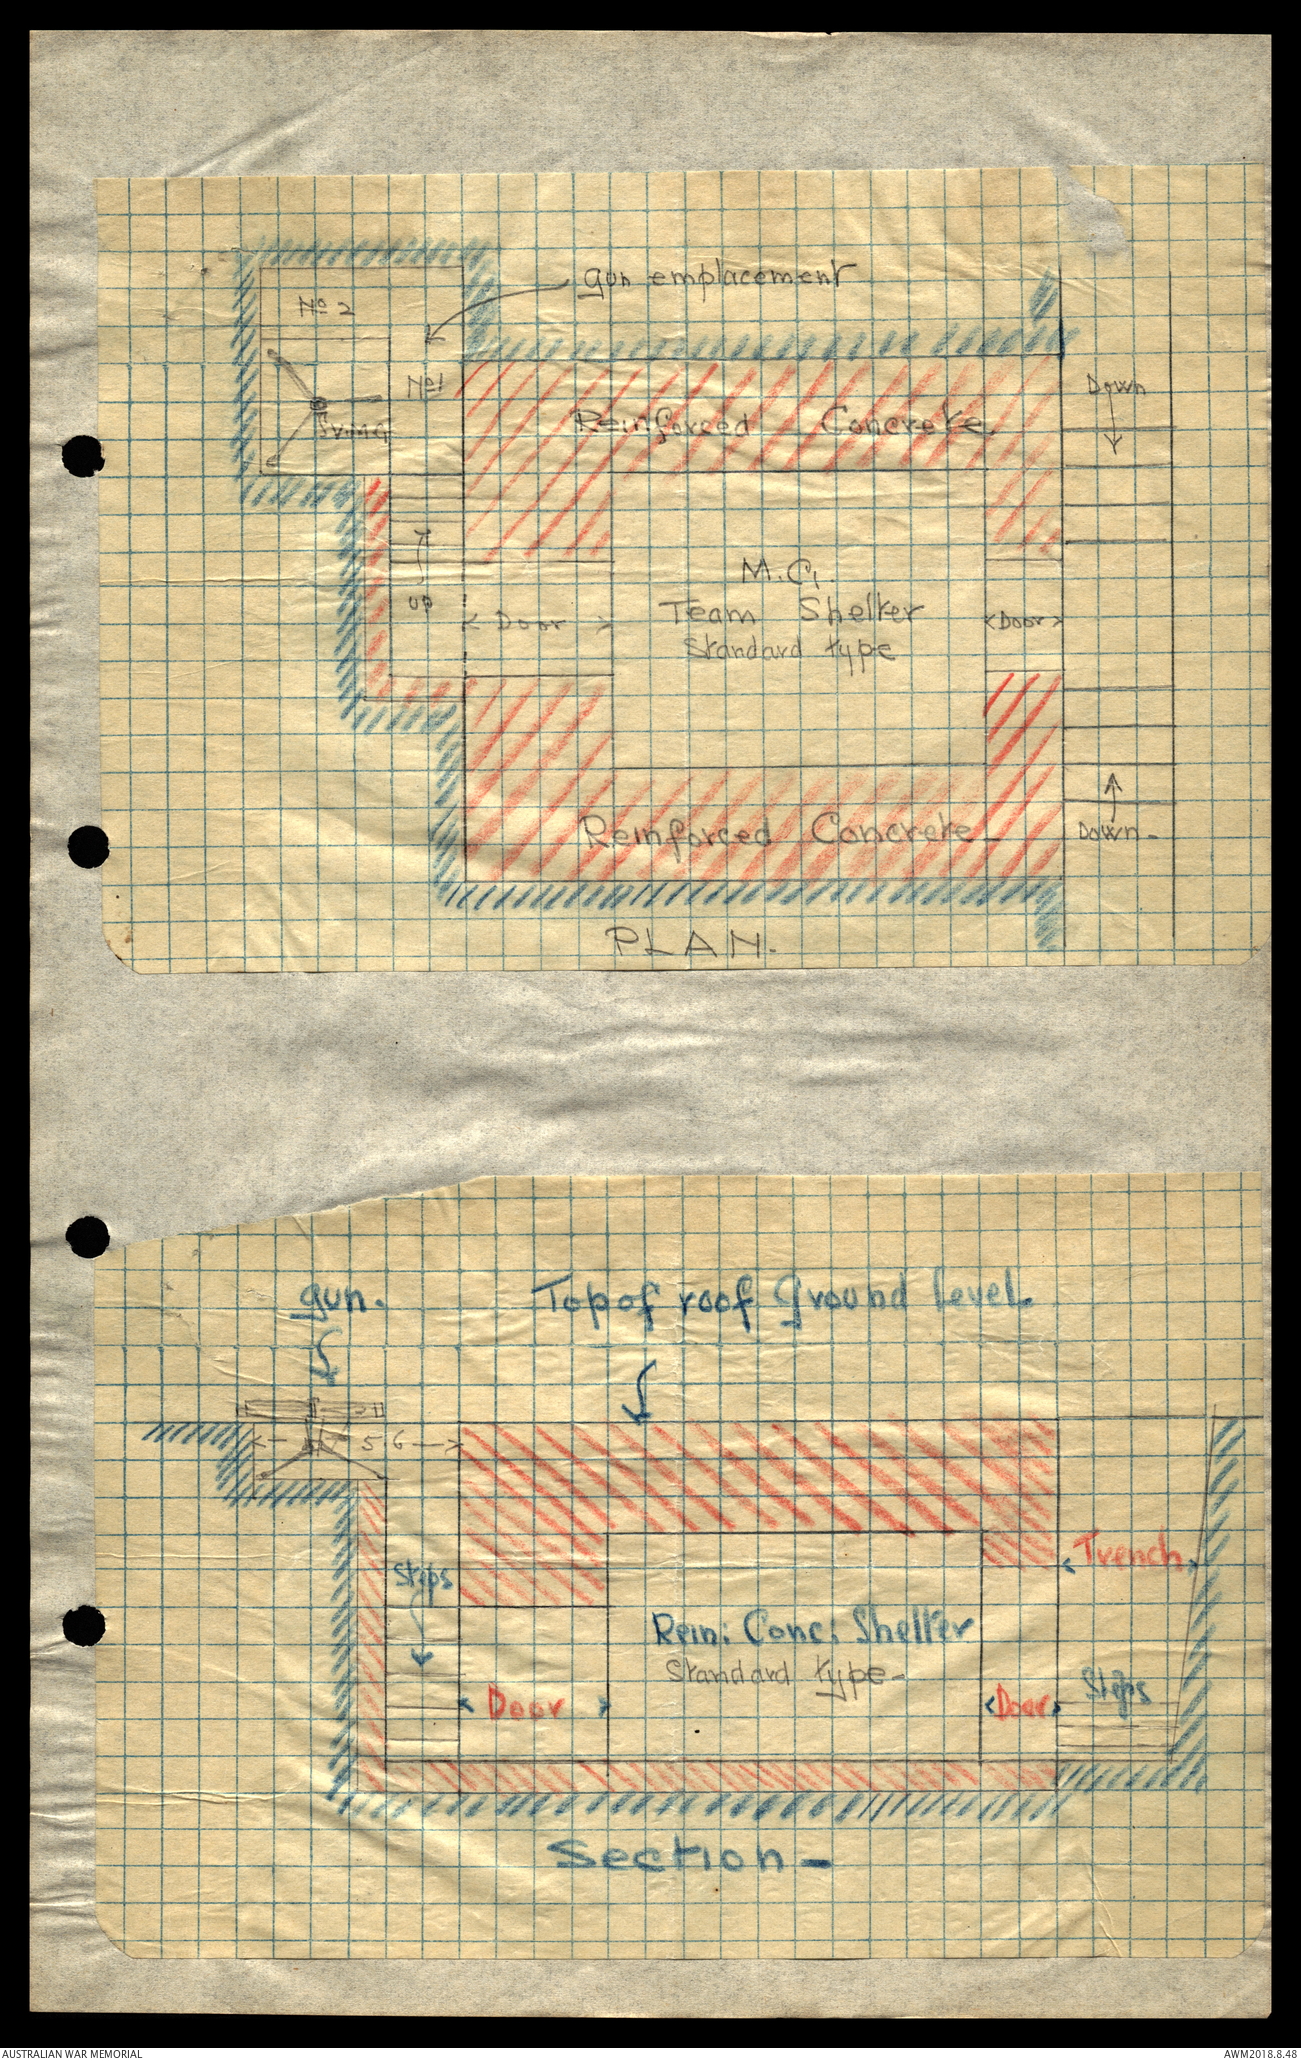 gun emplacement
No 2
No 1
Down
Reinforced Concrete.
M.G.
up
Team Shelter
< Door >
<Door>
Standard type
Reinforced Concrete
Down-
PLAN.
gun.
Top of roof Ground level.
5.6
Trench
Steps
Rein: Conc: Shelter
Standard type-
Steps
Door
Door
Section-
AUSTRALIAN WAR MEMORIAL
AWM2018.8.48